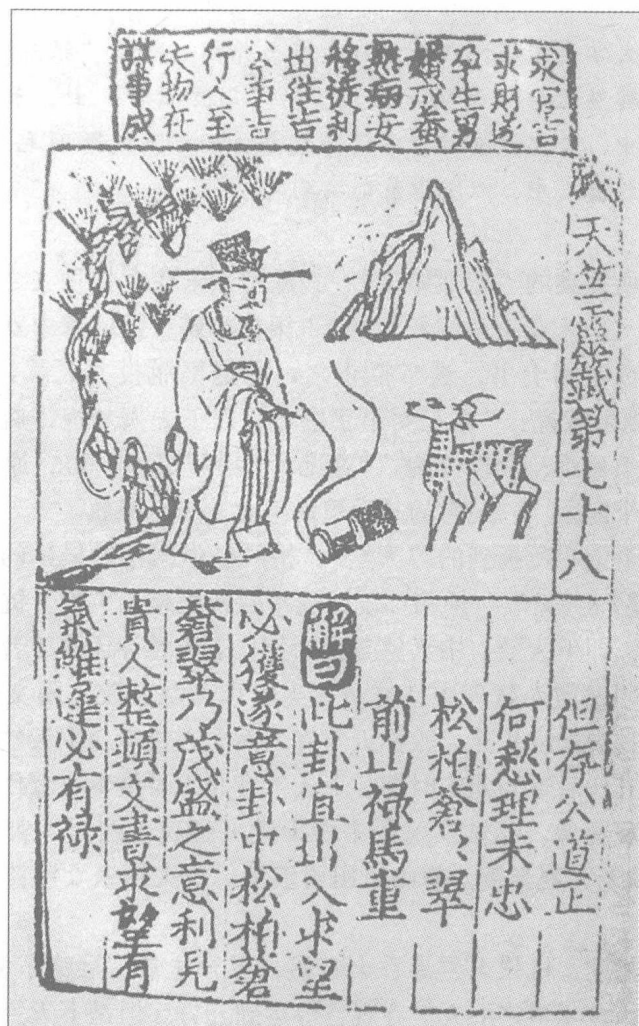 求官吉
求財遂
孕生男
婚成蚕
熟病安
移徙利
出往吉
公事吉
行人至
失物在
謀事成
天竺靈籤第七十八
但存公道正
何愁理未忠
松柏蒼〻翠
前山禄馬重
解曰此卦宜出入求望
必獲遂意卦中松柏蒼
蒼翠乃茂盛之意利見
貴人整頓文書求望有
氣雖遲必有禄